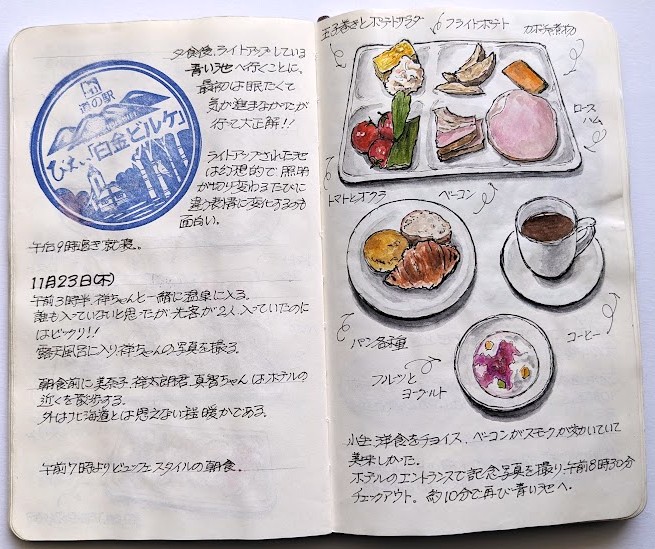 夕食後、ライトアップしている
青い池へ行くことに。
最初は眠たくて
気が進まなかったが
行って大正解!!
道の駅
びえい「白金ビルケ」
ライトアップされた池
は幻想的で、照明
が切り変わるたびに
違う表情に変化するのが
面白い。
午后9時過ぎ就寝。
11月23日(木)
午前3時半、祥ちゃんと一緒に温泉に入る。
誰も入っていないと思ったが先客が2人入っていたのに
はビックリ!!
露天風呂に入り祥ちゃんの写真を撮る。
朝食前に美奈子、祥太朗君、真智ちゃんはホテルの
近くを散歩する。
外は北海道とは思えない程暖かである。
午前7時よりビュッフェスタイルの朝食。
玉子巻きとポテトサラダ
フライドポテト
カボチャ煮物
ロース
ハム
トマトとオクラ
ベーコン
パン各種
コーヒー
フルーツと
ヨーグルト
小生、洋食をチョイス、ベーコンがスモークが効いていて
美味しかった。
ホテルのエントランスで記念写真を撮り、午前8時30分
チェックアウト。約10分で再び青い池へ。